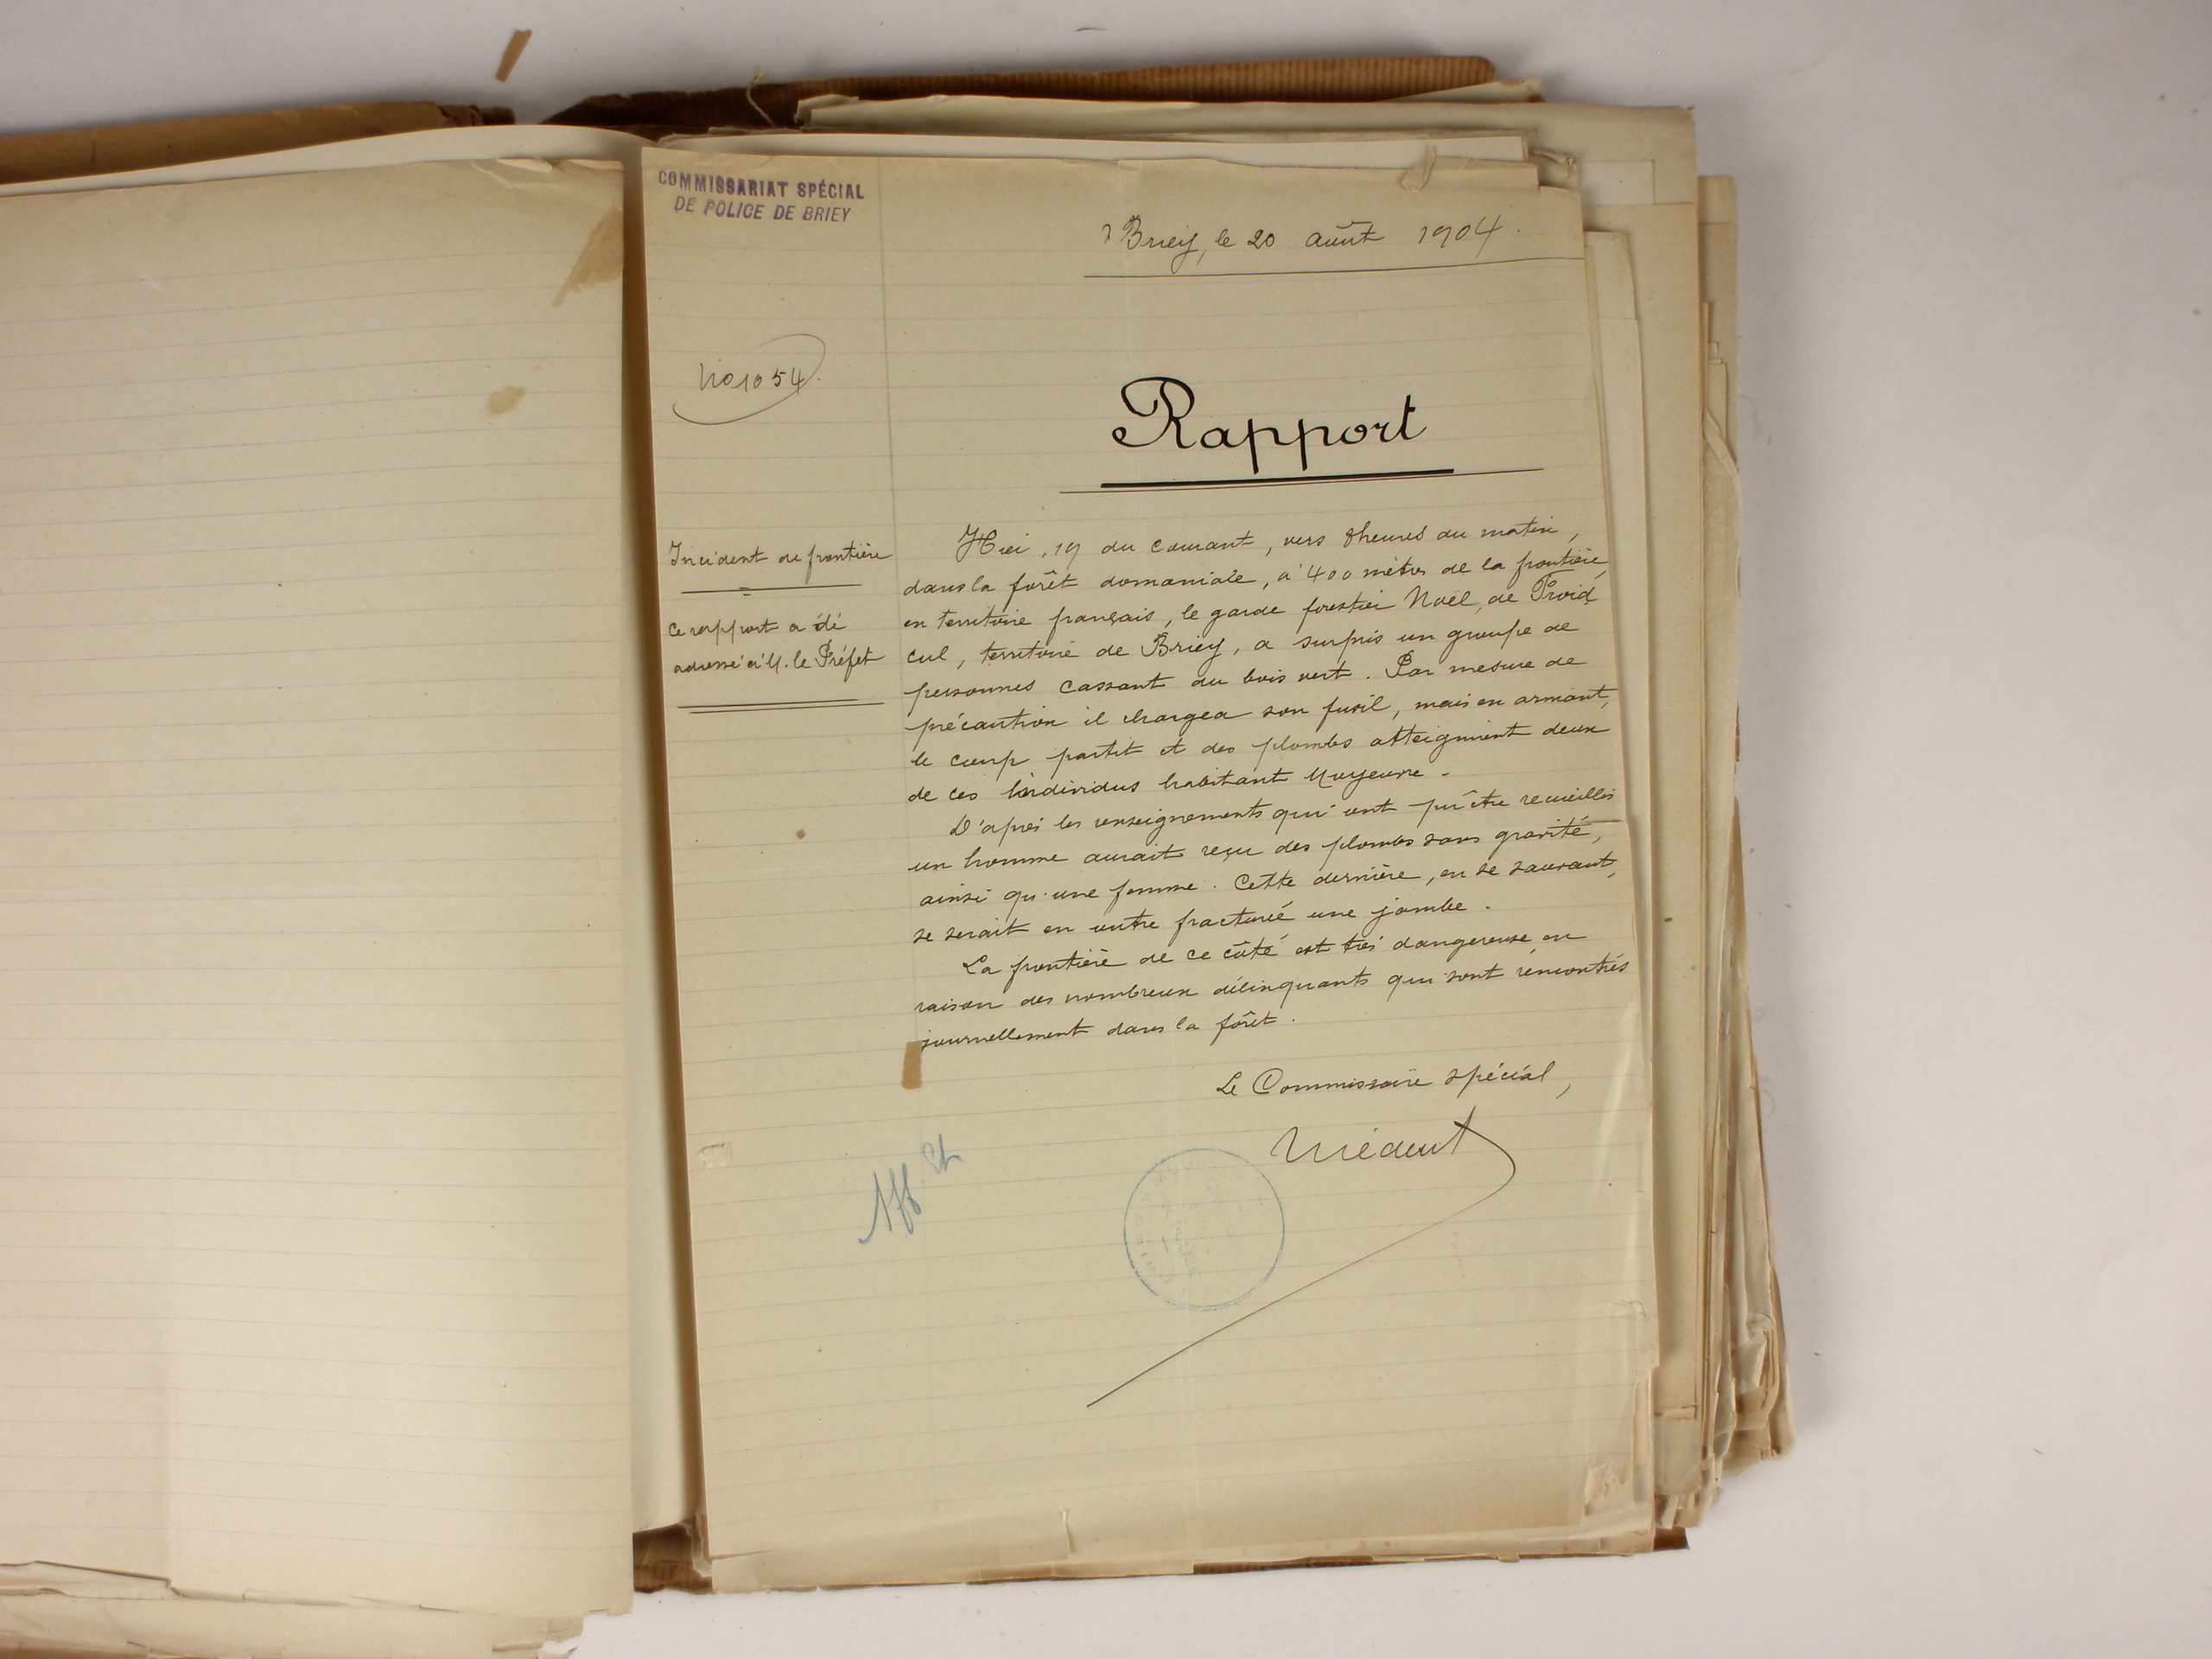 COMMISSARIAT SPÉCIAL
DE POLICE DE BRIEY
Briey, le 20 août 1904.
No 1054.
Rapport
Incident de frontière
Ce rapport a été
adressé à M. le Préfet
Hier, 19 du courant, vers 8 heures du matin,
dans la forêt domaniale, à 400 mètres de la frontière,
en territoire français, le garde forestier Noël, de Froid
cul, territoire de Briey, a surpris un groupe de
personnes cassant du bois vert. Par mesure de
précaution il chargea son fusil, mais en armant,
le coup partit et des plombs atteignirent deux
de ces individus habitant Moyeuvre.
D'après les renseignements qui ont pu être recueillis
un homme aurait reçu des plombs sans gravité,
ainsi qu'une femme. Cette dernière, en se sauvant,
se serait en outre fracturé une jambe.
La frontière de ce côté est très dangereuse en
raison des nombreux délinquants qui sont rencontrés
journellement dans la forêt.
Le Commissaire spécial,